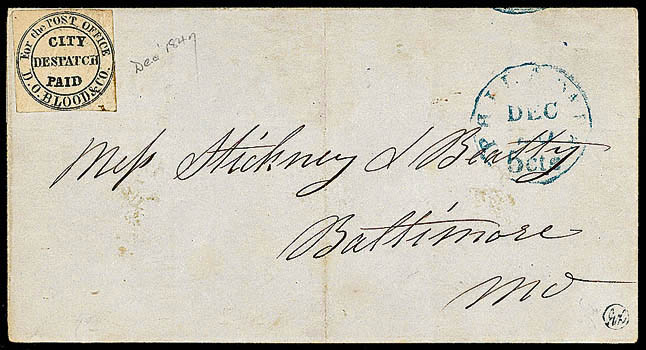 For the POST OFFICE
CITY
DESPATCH
PAID
D.O. BLOOD & CO.
Dec 1847
DEC
5cts
Mess Stickney & Beatty
Baltimore
Md